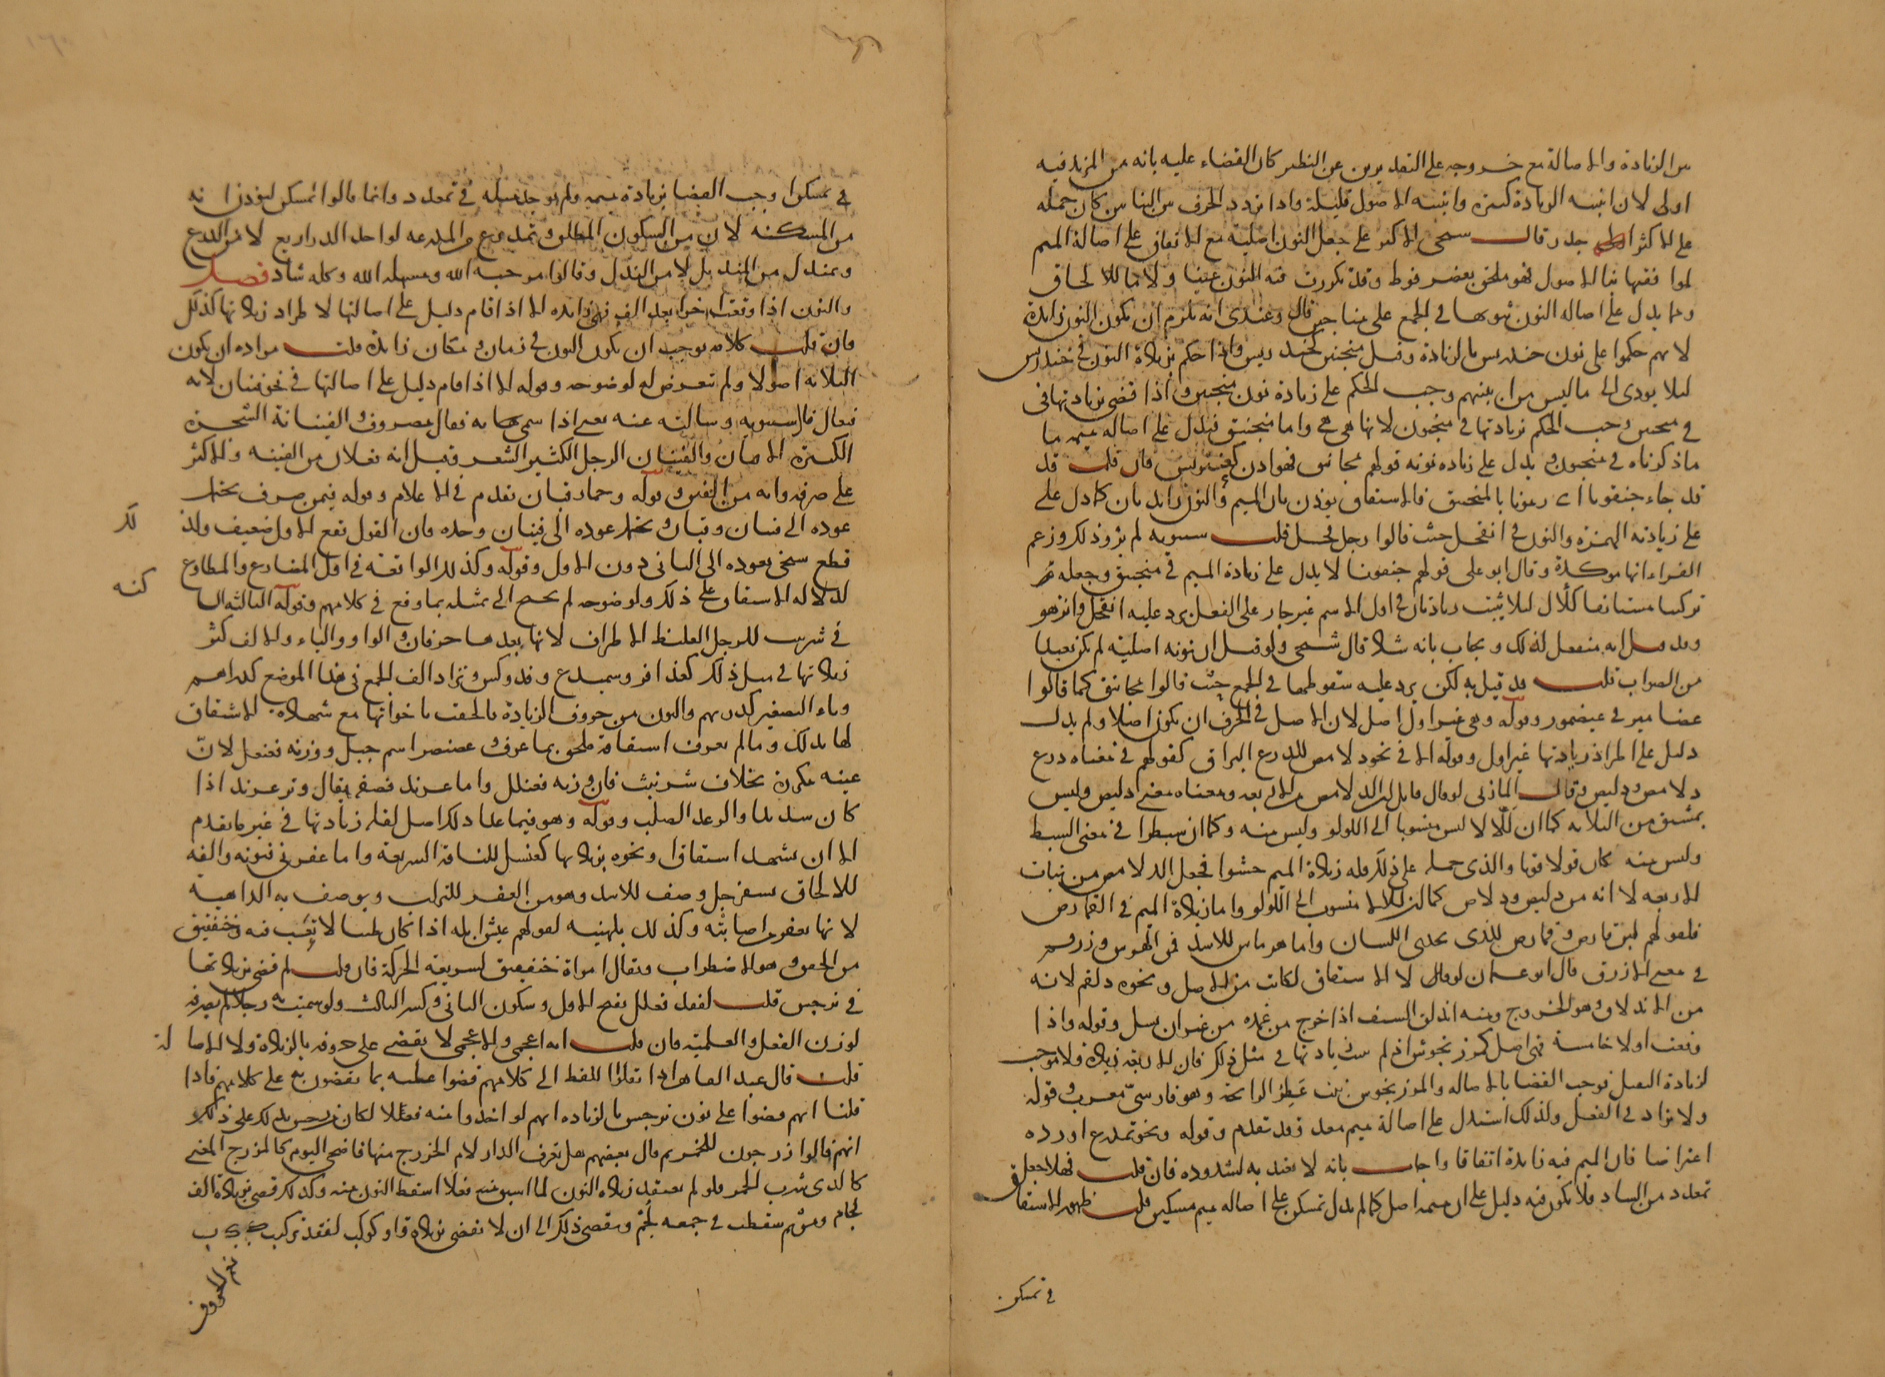 من الزيادة والاصالة مع خروجه على التقديرين عن النظير كان القضاء عليه بانه من المزيد فيه
اولى لان ابنية الزيادة كثيرة وابنية الاصول قليلة واذا تردد الحرف بين البابين كان حمله
على الاكثر جدر قلت سمحى الاكثر على جعل النون اصلية مع الاتفاق على اصالة الميم
فهو ملحق بعضرفوط وقد تكررت فيه النون عينا ولاما للالحاق
ومما يدل على اصالة النون ثبوتها في الجمع على مناجين قال وعندى انه يلزم ان يكون النون زايدة
لانهم حكموا على نون خندريس بالزيادة واذا حكم بزيادة النون في خندريس
ليلا يودى الى ما ليس من ابنيتهم وجب الحكم على زيادة نون منجنين واذا قضى بزيادتها في
في منجنين وجب الحكم بزيادتها في منجنون لانها هى هى واما منجنيق فيدل على اصالة ميمه ما
ما ذكرناه في منجنون ويدل على زيادة نونه قولهم مجانيق فان قلت قد
قد جاء جنقونا اى رمونا بالمنجنيق فالاشتقاق يوذن بان الميم والنون زايدتان كما دل على
على زيادة الهمزة والنون في انقحل حيث قالوا رجل قحل قلت سيبويه لم يرو ذلك وزعم
الفراء انها مولدة وقال ابو على قولهم جنقونا لا يدل على زيادة الميم في منجنيق وجعله من
ليلا يثبت زيادتان في اول الاسم غير جار على الفعل ويرد عليه انقحل وانزهو
وقد قيل انه منفعل لذلك ويجاب بانه شاذ قال شيخى ولو قيل ان نونه اصلية لم يكن بعيدا
من الصواب قلت قد قيل به لكن يرد عليه سقوطها في الجمع حيث قالوا مجانيق كما قالوا
وقوله وهى غير اول اصل لان الاصل في الحرف ان يكون اصلا ولم يدل
دليل على اطراد زيادتها غير اول وقوله الا في نحو دلامص للدرع البراق كقولهم في معناه درع
دلامص ودليص وقال المازنى لو قال قايل ان الدلامص من الاربعة ومعناه معنى دليص وليس
بمشتق من الثلاثة كما ان لئالا ليس منسوبا الى اللولو وليس منه وكما ان سبطرا في معنى السبط
وليس منه كان قولا قويا والذى حمله على ذلك قلة زيادة الميم حشوا فجعل الدلامص من بنات
الاربعة لا انه من دليص ودلاص كما ان لئالا منسوب الى اللولو واما زيادة الميم في القمارص
فلقولهم لبن قارص وقمارص للذى يحذى اللسان واما هرماس للاسد فمن الهرس وزرقم
في معنى الازرق قال ابو عثمان لولا الاشتقاق لكانت من الاصل ونحوه دلقم لانه
من الاندلاق وهو الخروج ومنه اندلق السيف اذا خرج من غمده من غير ان يسل وقوله واذا
وقعت اولا خامسة فهى اصل كمرزنجوش اذ لم يثبت زيادتها في مثل ذلك فان الاربعة
لزيادة الفعل فوجب القضا بالاصالة والمرزنجوش نبت عطر الرائحة وهو فارسى معرب وقوله
ولا تزاد في الفعل ولذلك استدل على اصالة ميم معد وقد تقدم وقوله ونحو تمدرع اورده
اعتراضا فان الميم فيه زايدة اتفاقا واجاب بانه لا يعتد به لشذوذه فان قلت فهلا جعل
تمعدد من الشاذ فلا يكون فيه دليل على ان ميمه اصل كما لم يدل تمسكن على اصالة ميم مسكين قلت ظهور الاشتقاق
في تمسكن
في تمسكن اوجب القضا بزيادة ميمه ولم يوجد مثله في تمعدد وانما قالوا تمسكن ليوذن انه
من المسكنة لا من السكون المطلق وتمدرع من المدرعة لواحد المداريع لا من الدرع
وتمندل من المنديل لا من الندل وقالوا مرحبك الله ومسهلك الله وكله شاذ فصل
والنون اذا وقعت اخرا بعد الف فهى زايدة الا اذا قام دليل على اصالتها لاطراد زيادتها كذلك
فان قلت كلامه يوجب ان يكون النون في زمان ومكان زايدة قلت مراده ان يكون
الثلاثة اصولا ولم يتعرض له لوضوحه وقوله الا اذا قام دليل على اصالتها في نحو فينان لانه
فيعال قال سيبويه وسالته عنه يعنى اذا سمى به فقال مصروف الفينانة الشجرة
الكثيرة الاغصان والفينان الرجل الكثير الشعر وقيل انه فعلان من الفينة والاكثر
على صرفه وانه من الفنن وقوله وحمار قبان تقدم في الاعلام وقوله فيمن صرف يحتمل
عوده الى فينان وقبان ويحتمل عوده الى فينان وحده فان القول تبع الاول ضعيف ولذلك
قطع شيخى بعوده الى الثانى دون الاول وقوله وكذلك الواقعة في اول المضارع والمطاوع
لدلالة الاشتقاق على ذلك ولوضوحه لم يحتج الى تمثيله بما وقع في كلامهم وقوله الثالثة الساكنة
في شرنبث للرجل الغليظ الاطراف لانها بعدها حرفان والواو والياء والالف كثر
زيادتها في مثل ذلك كعذافر وسميدع وفدوكس وتزاد الف الجمع في هذا الموضع كدراهم
وياء التصغير كدريهم والنون من حروف الزيادة فالحقت باخواتها مع شهادة الاشتقاق
لها بذلك وما لم يعرف اشتقاقه ملحق بما عرف وعصنصر اسم جبل ووزنه فعنعل لان
عينه مكررة بخلاف شرنبث فان وزنه فعنلل واما عرند فصفة يقال وتر عرند اذا
كان شديدا والرعد الصلب وقوله وهو فيما عدا ذلك اصل لقلة زيادتها في غير ما تقدم
الا ان يشهد اشتقاق ونحوه بزيادتها كعنسل للناقة السريعة واما عفرنى فنونه والفه
للالحاق بسفرجل وصف للاسد وهو من العفر للتراب ويوصف به الداهية
لانها يعفر من اصابته وكذلك بلهنية لقولهم عيش ابله اذا كان طيبا لا تعب فيه وخنفقيق
من الخفق وهو الاضطراب ويقال امراة خنفقيق لسريعة الحركة فان قلت لم قضى بزيادتها
في نرجس قلت لفقد فعلل بفتح الاول وسكون الثانى وكسر الثالث ولو سميت به رجلا لم تصرفه
لوزن الفعل والعلمية فان قلت انه اعجمى والاعجمى لا يقضى على حروفه بالزيادة ولا الاصالة
قلت قال عبد القاهر اذا نقلوا اللفظ الى كلامهم قضوا عليه بما يقضون به على كلامهم فاذا
قلنا انهم قضوا على نون نرجس بالزيادة انهم لو اخذوا منه فعلا لكان يدلك على ذلك
انهم قالوا زرجون للخمر ثم قال بعضهم هل تعرف الدار لام الخزرج منها فاضحى اليوم كالمزرج المعنى
كالذى شرب الخمر فلو لم يعتقد زيادة النون لما اسقط النون منه وكذلك قضى بزيادة الف
لجام ومن ثم سقطت في جمعه لجم ويقضى ذلك الى ان لا يقضى بزيادة واو كوكب لفقد تركيب ككب
من الحروف